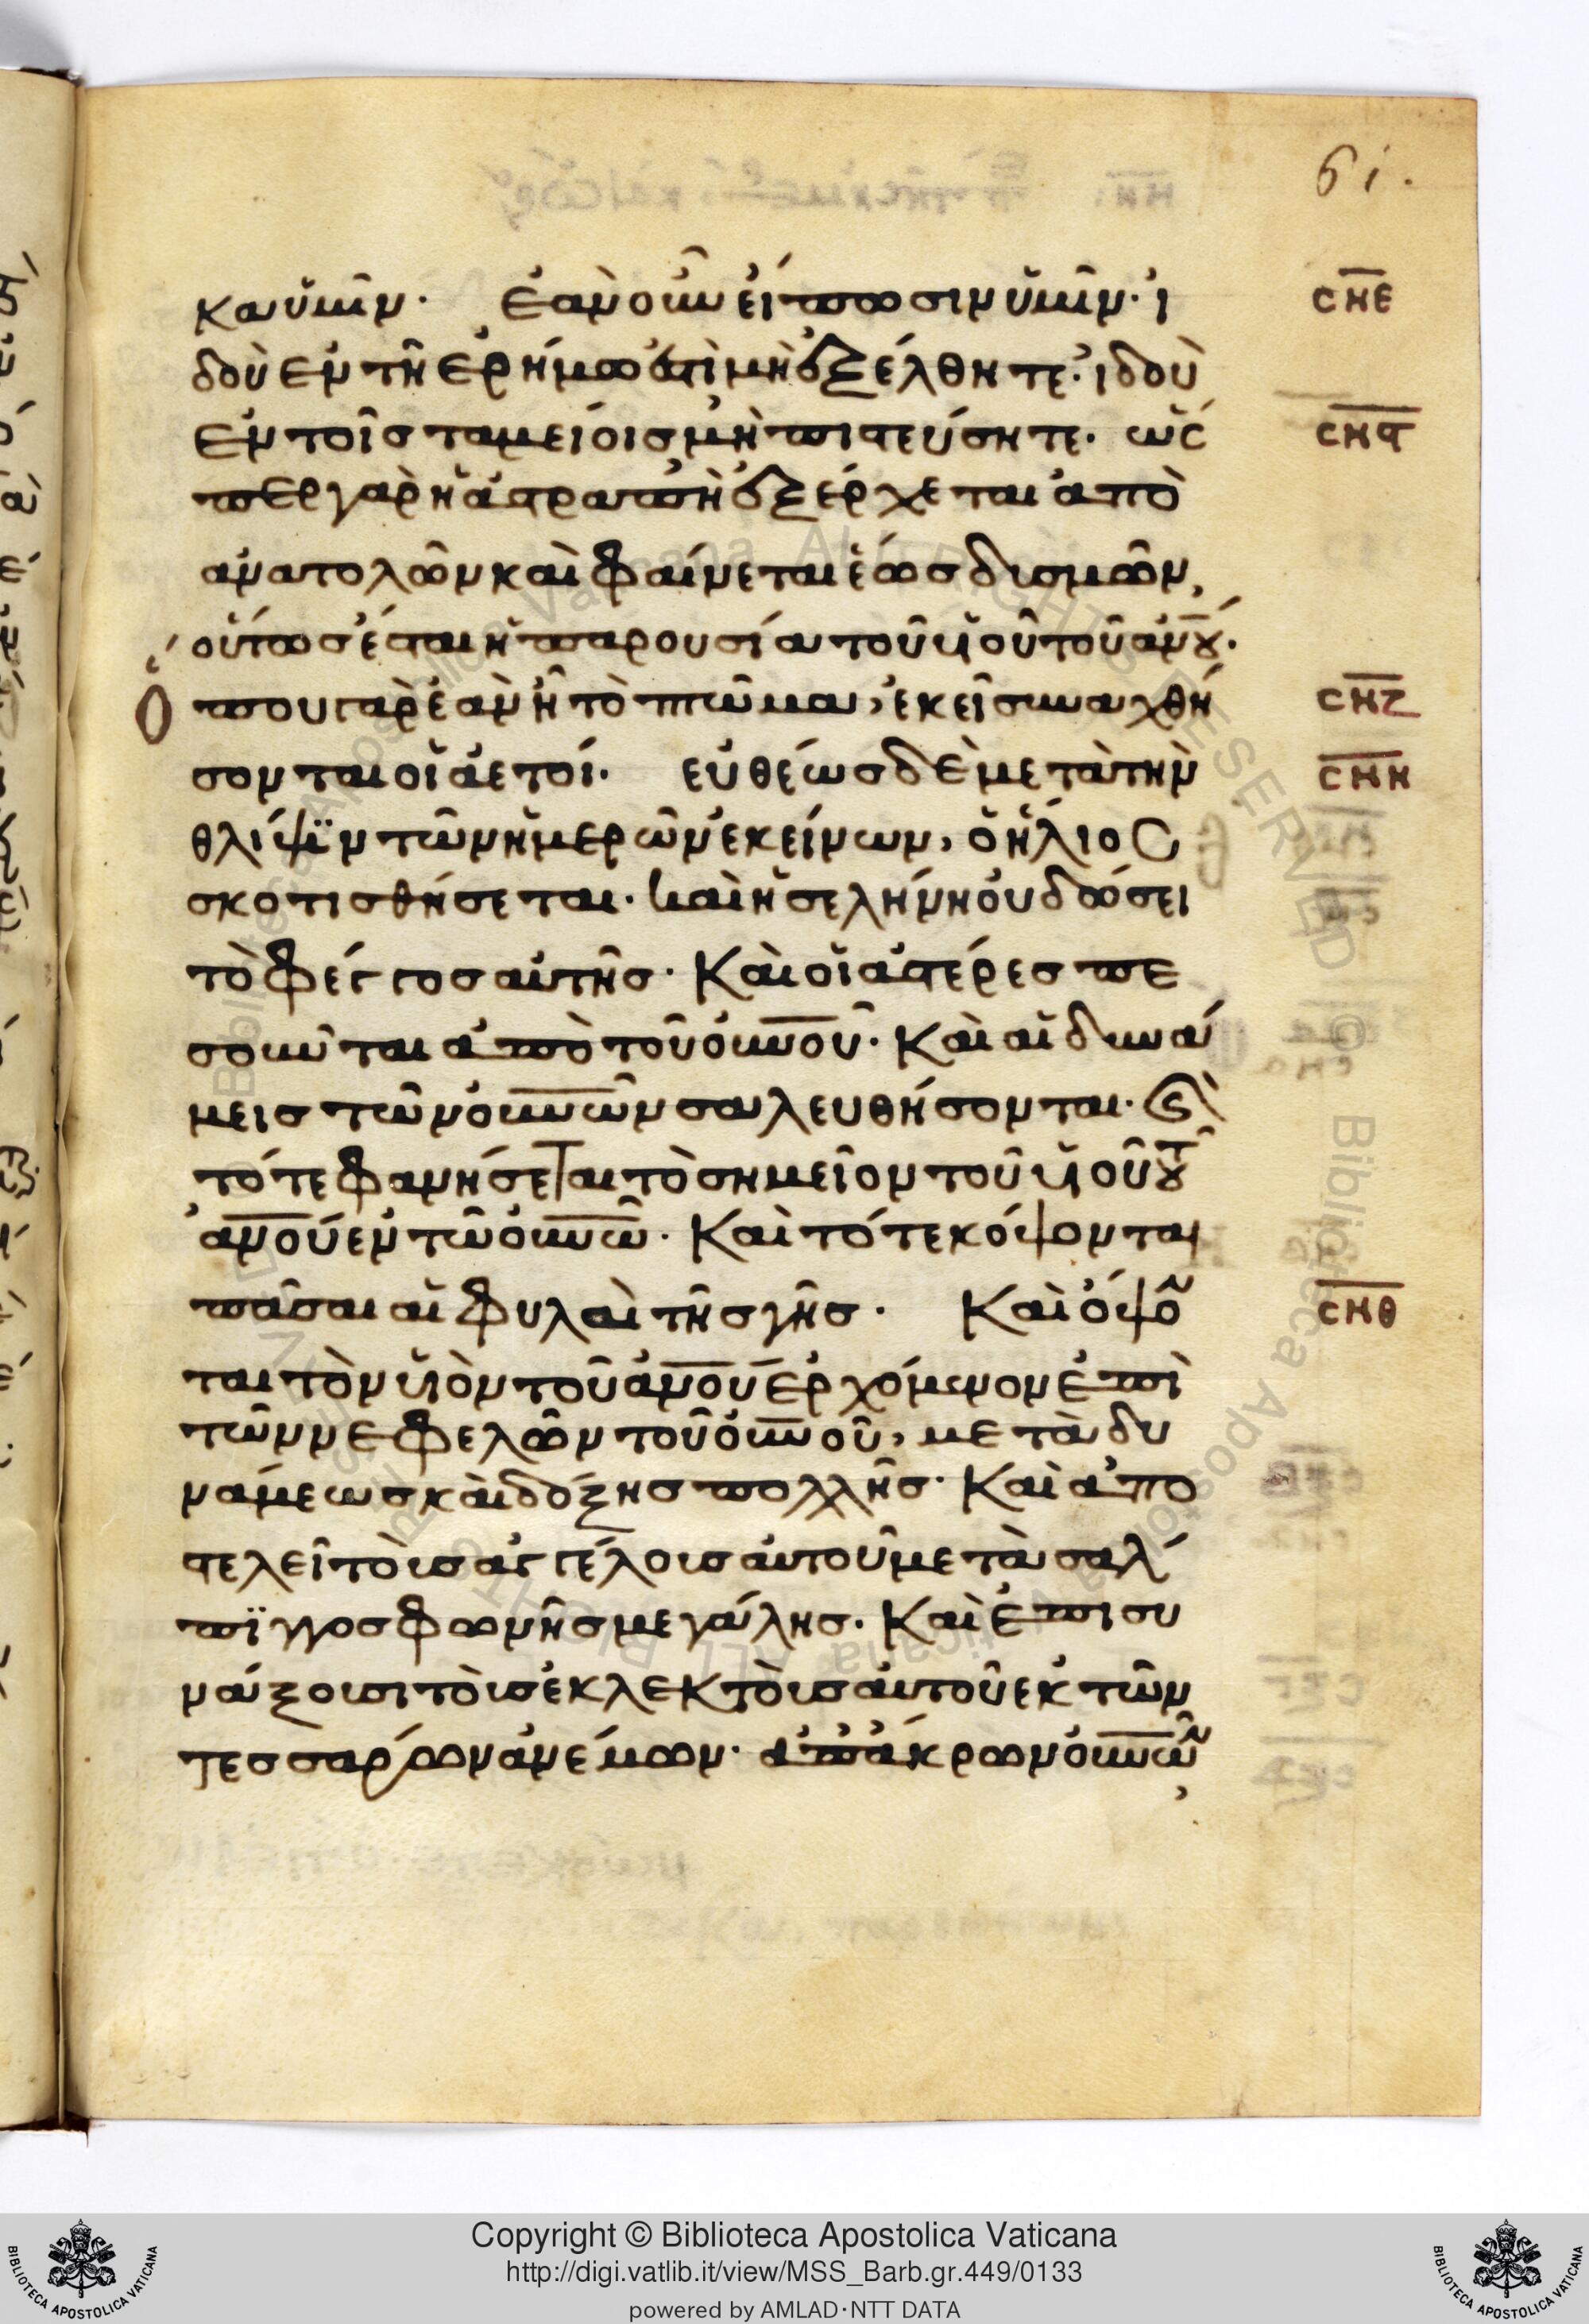 61.
κα ὑμῖν· Ἐὰν οὖν εἴπωσιν ὑμῖν· ἰ σ̅η̅ε̅
δοὺ ἐν τῆ ἐρήμω ἐστὶ μὴ ἐξέλθητε· ἰδοὺ
ἐν τοῖς ταμείοις μὴ πιστεύσητε. ὥσ σ̅η̅ϛ̅
περ γὰρ ἡ ἀστραπὴ ἐξέρχεται ἀπὸ
ἀνατολῶν καὶ φαίνεται ἕως δισμῶν,
οὕτως ἔσται ἡ παρουσία τοῦ υἱοῦ τοῦ α̅ν̅ο̅υ̅·
Ὅπου γὰρ ἐὰν ἦ τὸ πτῶμα, ἐκεῖ συναχθή σ̅η̅ζ̅
σονται οἱ ἀετοί· εὐθέως δὲ μετὰ τὴν σ̅η̅η̅
θλίψϊν τῶν ἡμερῶν ἐκείνων, ὁ ἥλιος
σκοτισθήσεται· καὶ ἡ σελήνη οὐ δώσει
τὸ φέγγος αὐτῆς· Καὶ οἱ ἀστέρες πε
σοῦνται ἀπὸ τοῦ ο̅υ̅ν̅ο̅ῦ̅· Καὶ αἱ δυνά
μεις τῶν ο̅υ̅ν̅ῶ̅ν̅ σαλευθήσονται· Καὶ
τότε φανήσεται τὸ σημεῖον τοῦ υἱοῦ τοῦ
α̅ν̅ο̅υ̅ ἐν τῶ ο̅υ̅ν̅ῶ̅· Καὶ τότε κόψονται
πᾶσαι αἱ φυλαὶ τῆς γῆς· Καὶ ὄψο̅ σ̅η̅θ̅
ται τὸν υἱὸν τοῦ α̅ν̅ο̅υ̅ ἐρχόμενον ἐπὶ
τῶν νεφελῶν τοῦ ο̅υ̅ν̅ο̅ῦ̅, μετὰ δυ
νάμεως καὶ δόξης πολλῆς· Καὶ ἀπο
στελεῖ τοὺς ἀγγέλους αὐτοῦ μετὰ σάλ
πϊγγος φωνῆς μεγάλης. Καὶ ἐπισυ
νάξουσι τοὺς ἐκλεκτοὺς αὐτοῦ ἐκ τῶν
τεσσάρων ἀνέμων· ἀπ' ἄκρων ο̅υ̅ν̅ῶ̅ν̅,
Copyright © Biblioteca Apostolica Vaticana
http://digi.vatlib.it/view/MSS_Barb.gr.449/0133
powered by AMLAD·NTT DATA